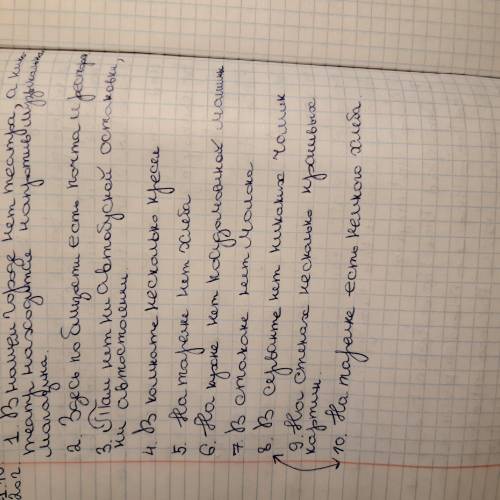 1. В нашем городе нет театра, а кино-
театр находится напротив музыкального
магазина.
2. Здесь поблизости есть почта и
3. Там нет ни автобусной остановки,
ни автостоянки
4. В комнате несколько кресел
5. На тарелке нет хлеба
6. На кухне нет машины
7. В стакане нет молока
8. В серванте нет никаких чашек
9. На стенах несколько красивых
картин.
10. На тарелке есть немного хлеба.